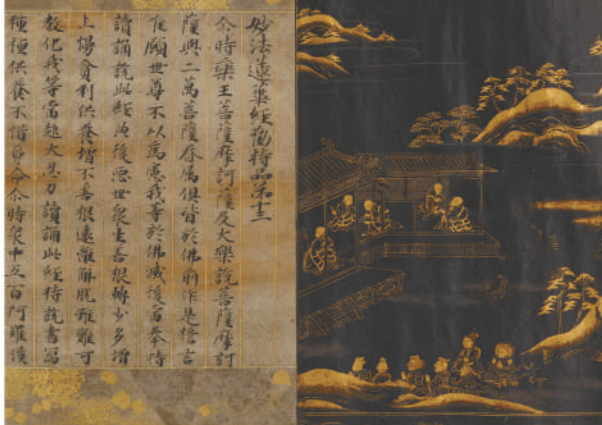 妙法蓮華經勸持品第十三
尒時藥王菩薩摩訶薩及大樂說菩薩摩訶
薩與二萬菩薩眷屬俱皆於佛前作是誓言
唯願世尊不以為慮我等於佛滅後當奉持
讀誦說此經典後惡世眾生善根轉少多增
上慢貪利供養增不善根遠離解脫雖難可
教化我等當起大忍力讀誦此經持說書寫
種種供養不惜身命尒時眾中五百阿羅漢